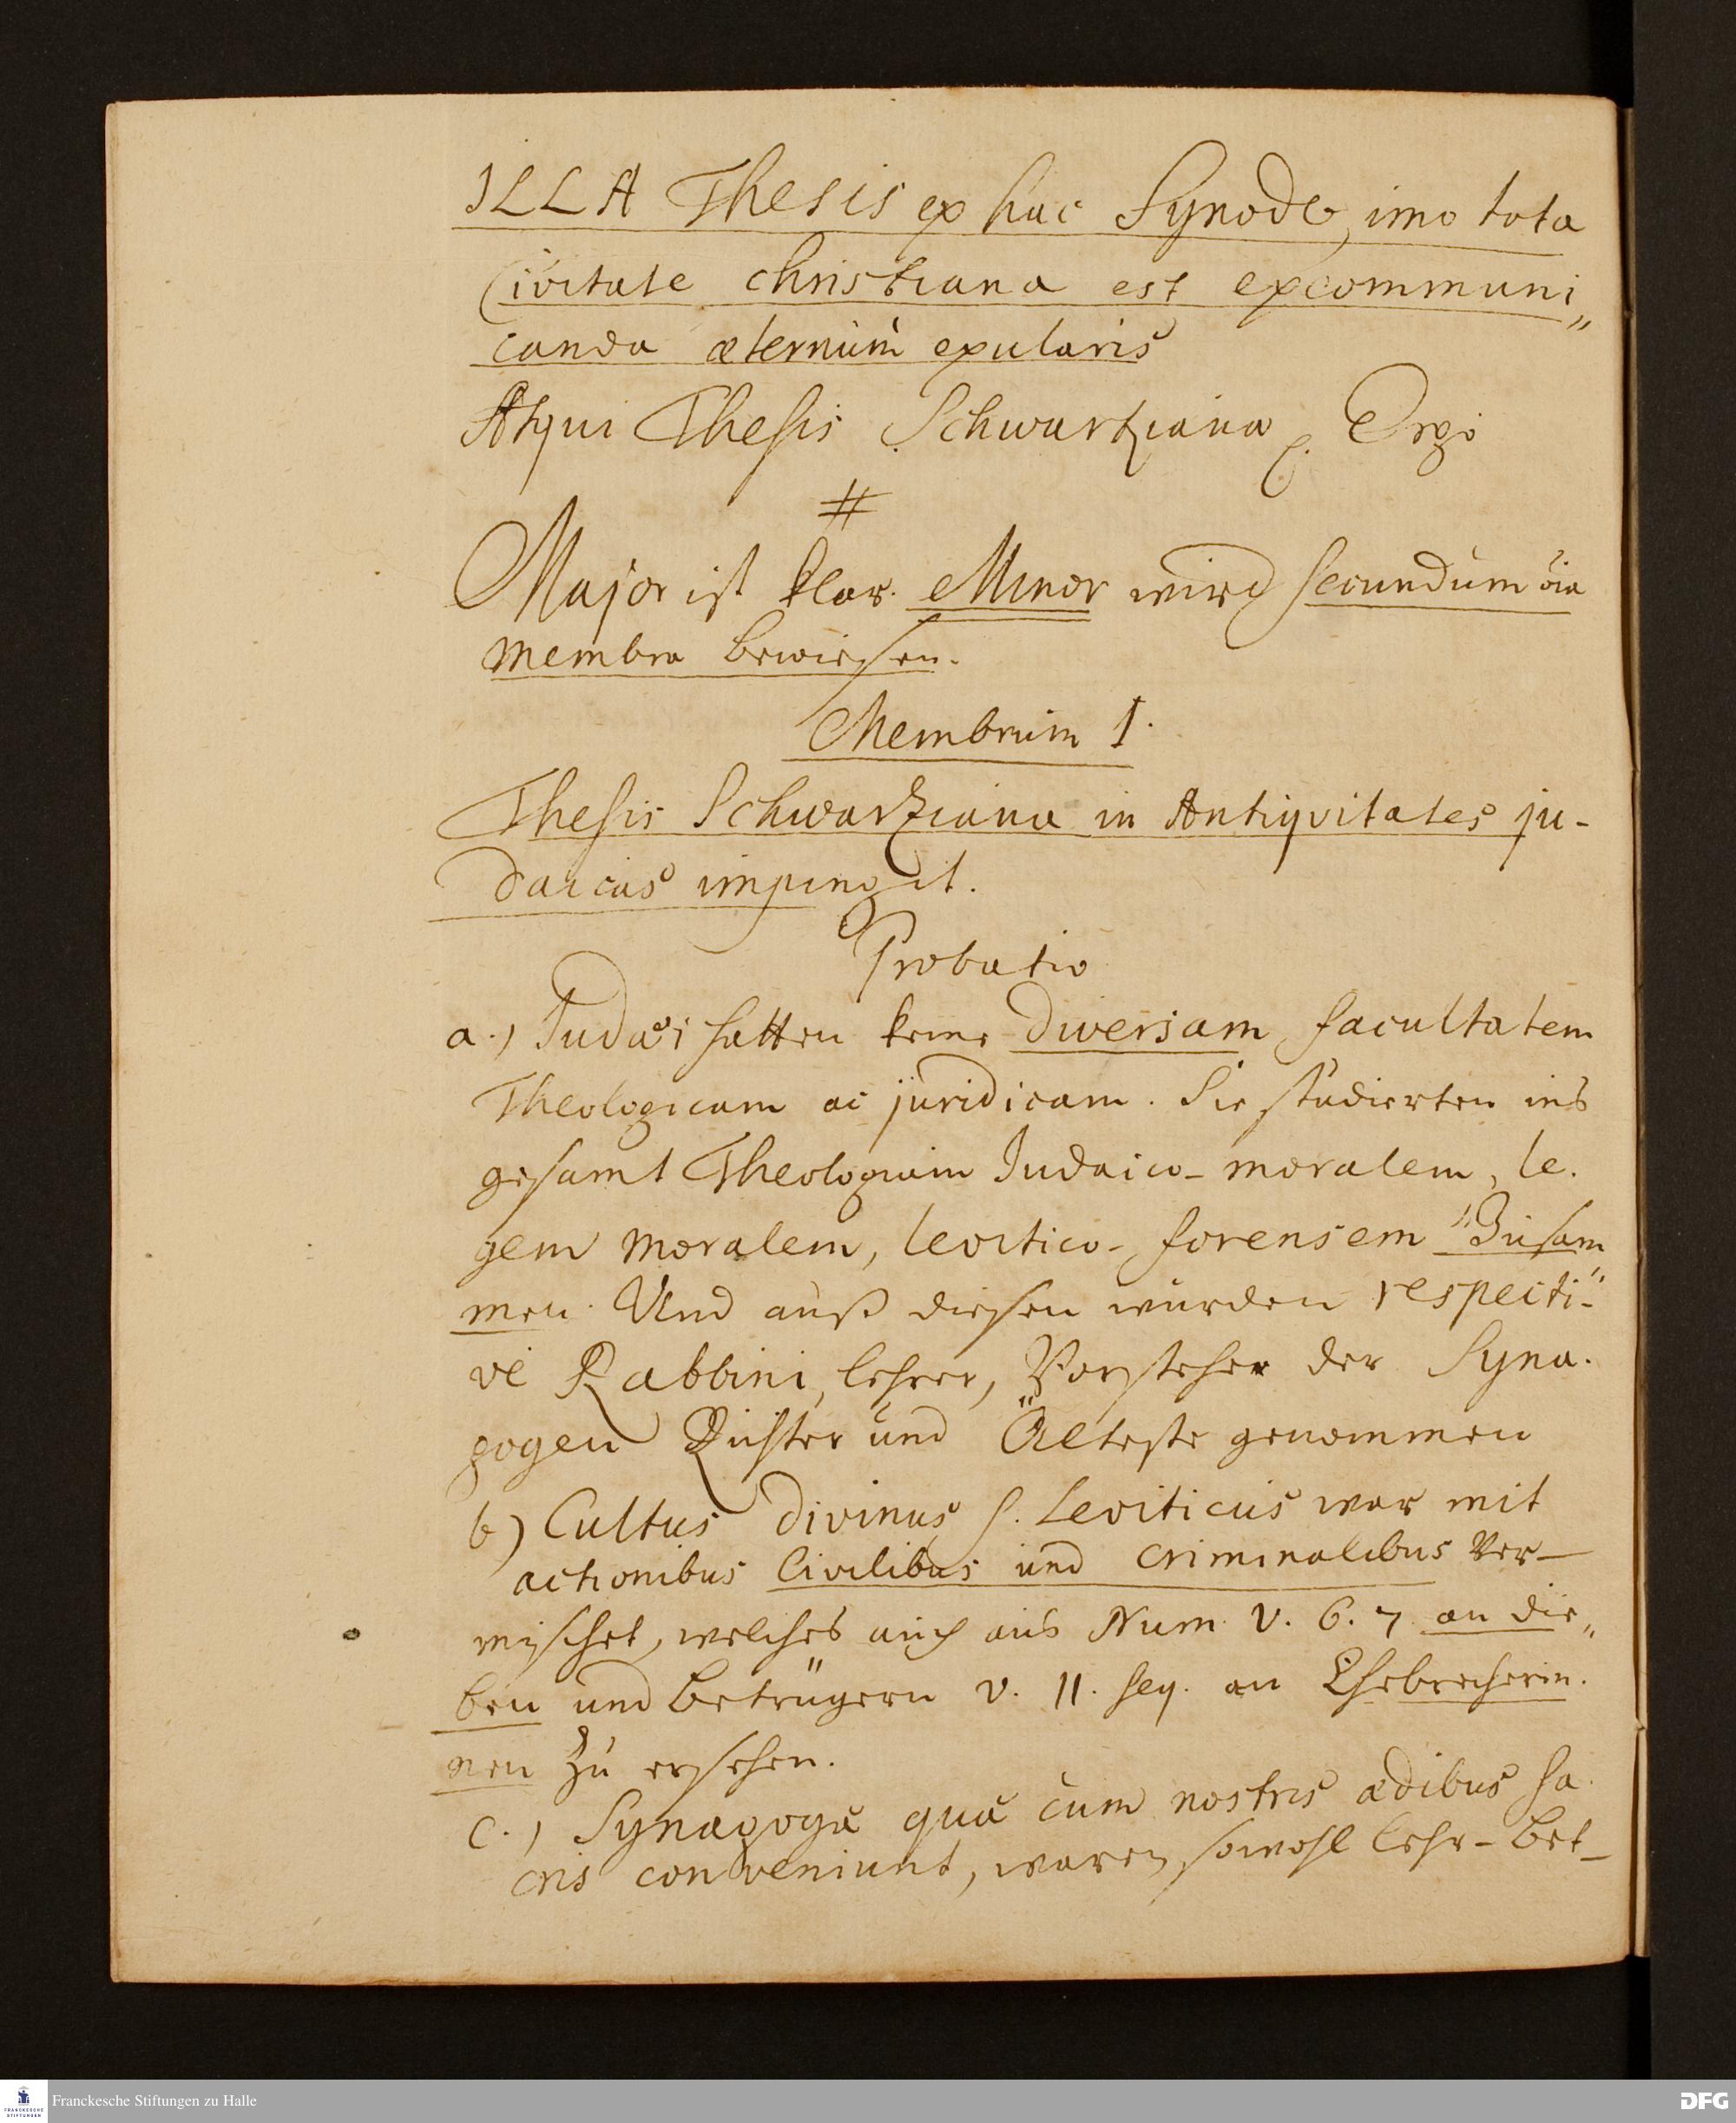 ILLA Thesis ex hac Synodo, imo tota
Civitate christiana est excommuni„
canda æternùm exularis
Atqui Thesis Schwartziana p. Ergo
#
Major ist klar. Minor wird secundum oĩa
membra bewiesen.
Membrum 1.
Thesis Schwartziana in Antiqvitates ju-
daicas impingit.
Probatio
a.) Judæi hatten keine diversam facultatem
Theologicam ac juridicam. Sie studierten ins
gesamt Theologiam Judaico-moralem, le.
gem moralem, levitico-forensem Zusam„
men. Und auß diesen wurden respecti-
vè Rabbini, lehrer, Vorsteher der Syna.
gogen Richter und Älteste genommen
b) Cultus divinus s. Leviticus war mit
actionibus Civilibus und criminalibus ver-
mischet, welches auch aus Num. V. 6. 7 an die„
ben und betrügern v. 11. seq. an Ehebrecherin.
nen zu ersehen.
c.) Synagogæ quæ cum nostris ædibus sa.
cris conveniunt, waren sowohl lehr-bet-
Franckesche Stiftungen zu Halle
DFG
FRANCKESCHE
STIFTUNGEN